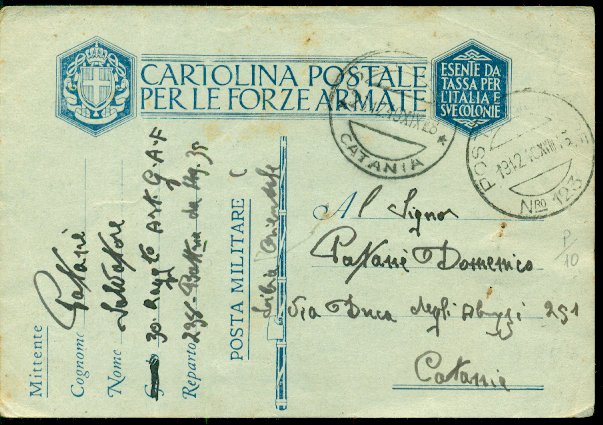 CARTOLINA POSTALE
PER LE FORZE ARMATE
ESENTE DA
TASSA PER
L'ITALIA E
SVE COLONIE
CATANIA
POS
13 12
NRO 123
Mittente
Cognome Patanè
Nome Salvatore
30 Ragg/to Art G.A.F
Reparto 238 Batteria da
POSTA MILITARE
Libia Orientale
Al Signor
Patanè Domenico
Via Duca degli Abruzzi 251
Catania
P/10